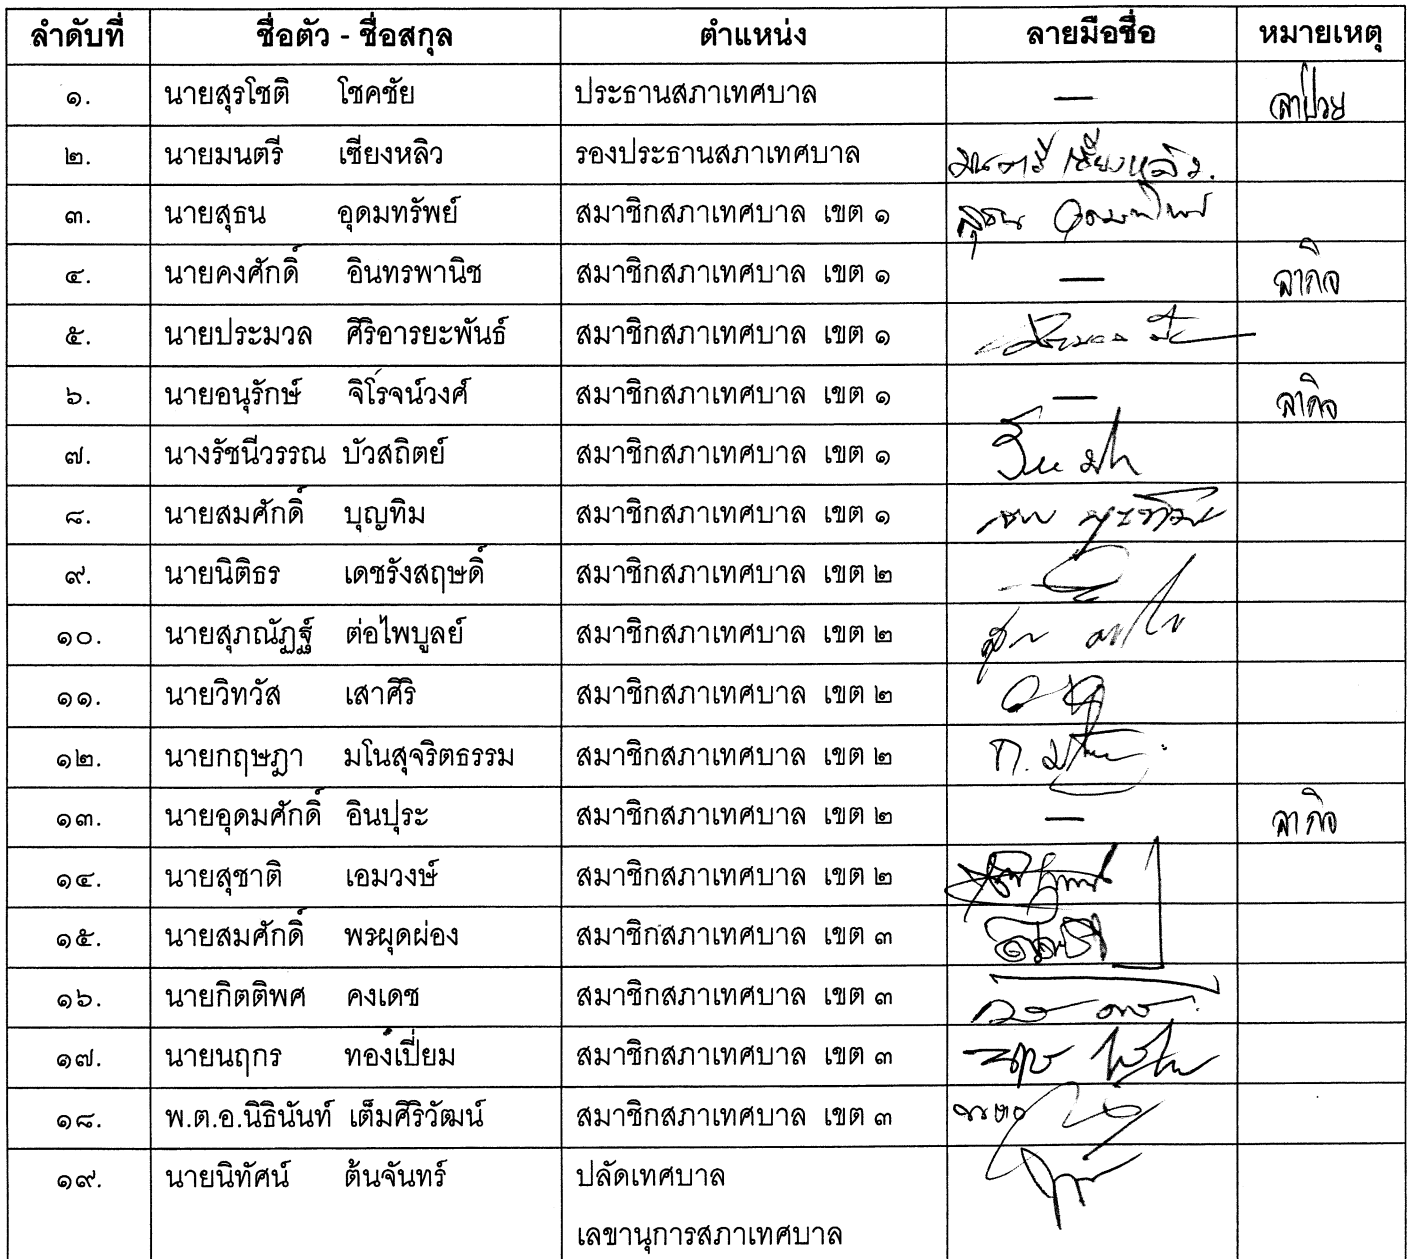 ลำดับที่ ชื่อตัว - ชื่อสกุล ตำแหน่ง ลายมือชื่อ หมายเหตุ
๑. นายสุรโชติ โชคชัย ประธานสภาเทศบาล — ลาป่วย
๒. นายมนตรี เซียงหลิว รองประธานสภาเทศบาล มนตรี เซียงหลิว.
๓. นายสุธน อุดมทรัพย์ สมาชิกสภาเทศบาล เขต ๑ สุธน อุดมทรัพย์
๔. นายคงศักดิ์ อินทรพานิช สมาชิกสภาเทศบาล เขต ๑ — ลากิจ
๕. นายประมวล ศิริอารยะพันธ์ สมาชิกสภาเทศบาล เขต ๑
๖. นายอนุรักษ์ จิโรจน์วงศ์ สมาชิกสภาเทศบาล เขต ๑ — ลากิจ
๗. นางรัชนีวรรณ บัวสถิตย์ สมาชิกสภาเทศบาล เขต ๑
๘. นายสมศักดิ์ บุญทิม สมาชิกสภาเทศบาล เขต ๑
๙. นายนิติธร เดชรังสฤษดิ์ สมาชิกสภาเทศบาล เขต ๒
๑๐. นายสุภณัฏฐ์ ต่อไพบูลย์ สมาชิกสภาเทศบาล เขต ๒
๑๑. นายวิทวัส เสาศิริ สมาชิกสภาเทศบาล เขต ๒
๑๒. นายกฤษฎา มโนสุจริตธรรม สมาชิกสภาเทศบาล เขต ๒
๑๓. นายอุดมศักดิ์ อินปุระ สมาชิกสภาเทศบาล เขต ๒ — ลากิจ
๑๔. นายสุชาติ เอมวงษ์ สมาชิกสภาเทศบาล เขต ๒
๑๕. นายสมศักดิ์ พรผุดผ่อง สมาชิกสภาเทศบาล เขต ๓
๑๖. นายกิตติพศ คงเดช สมาชิกสภาเทศบาล เขต ๓
๑๗. นายนฤกร ทองเปี่ยม สมาชิกสภาเทศบาล เขต ๓
๑๘. พ.ต.อ.นิธินันท์ เต็มศิริวัฒน์ สมาชิกสภาเทศบาล เขต ๓
๑๙. นายนิทัศน์ ต้นจันทร์ ปลัดเทศบาล
เลขานุการสภาเทศบาล